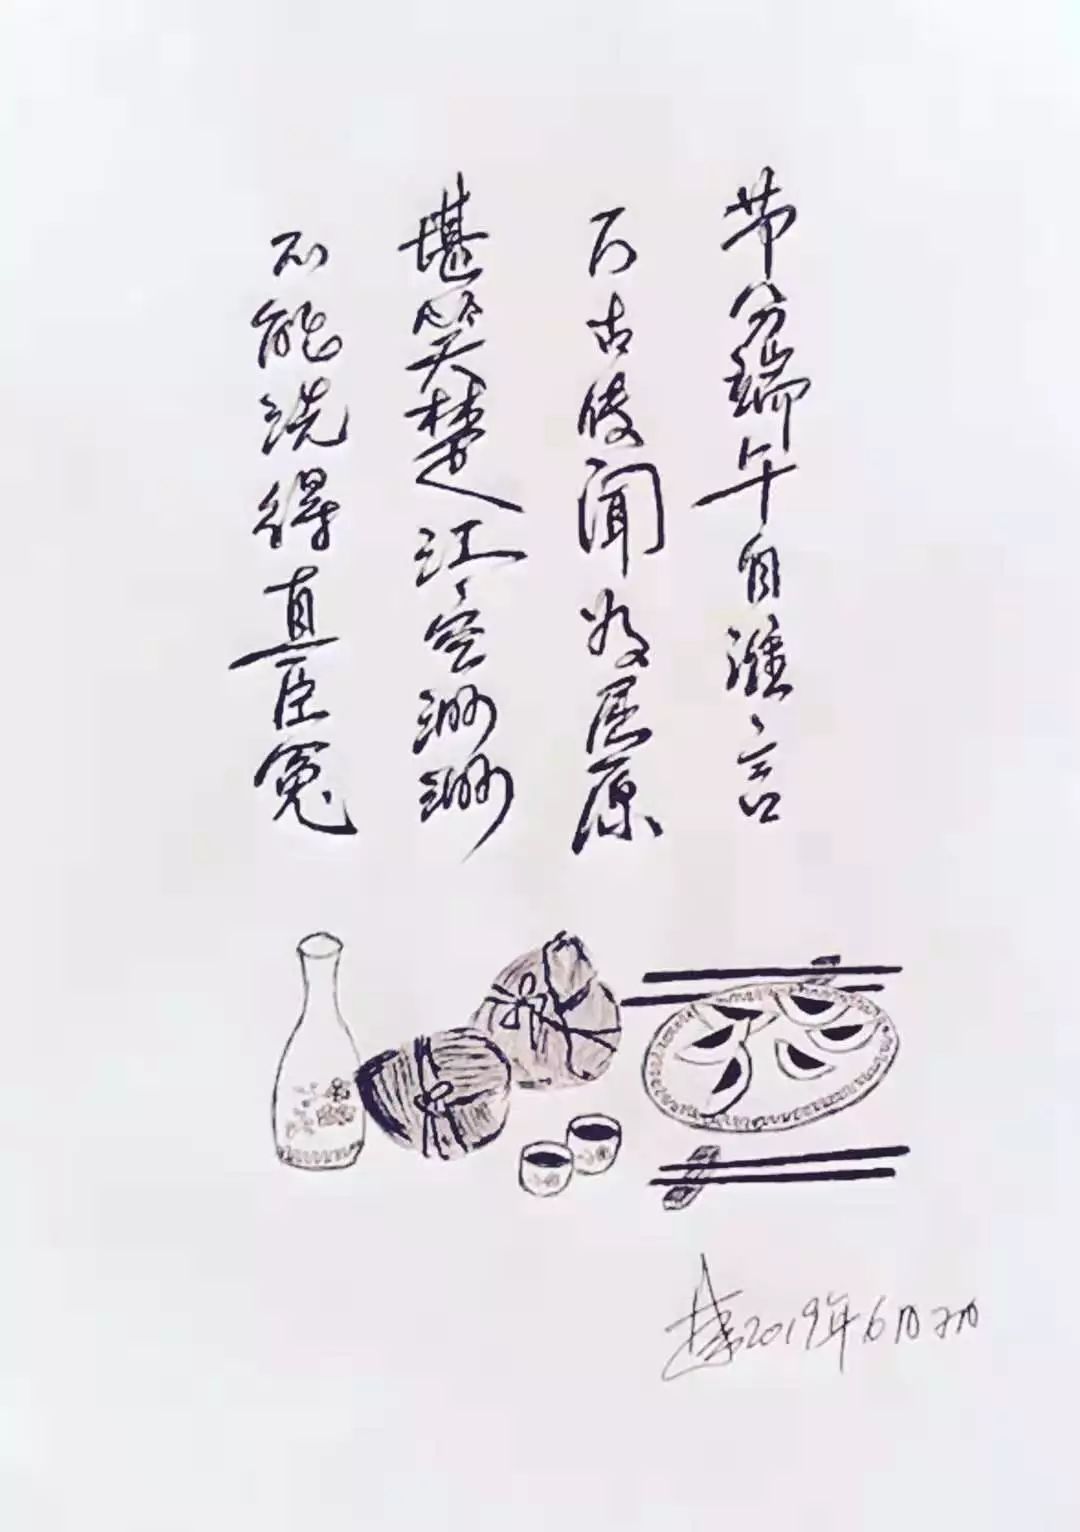 节分端午自谁言
万古传闻为屈原
堪笑楚江空渺渺
不能洗得直臣冤
2019年6月7日